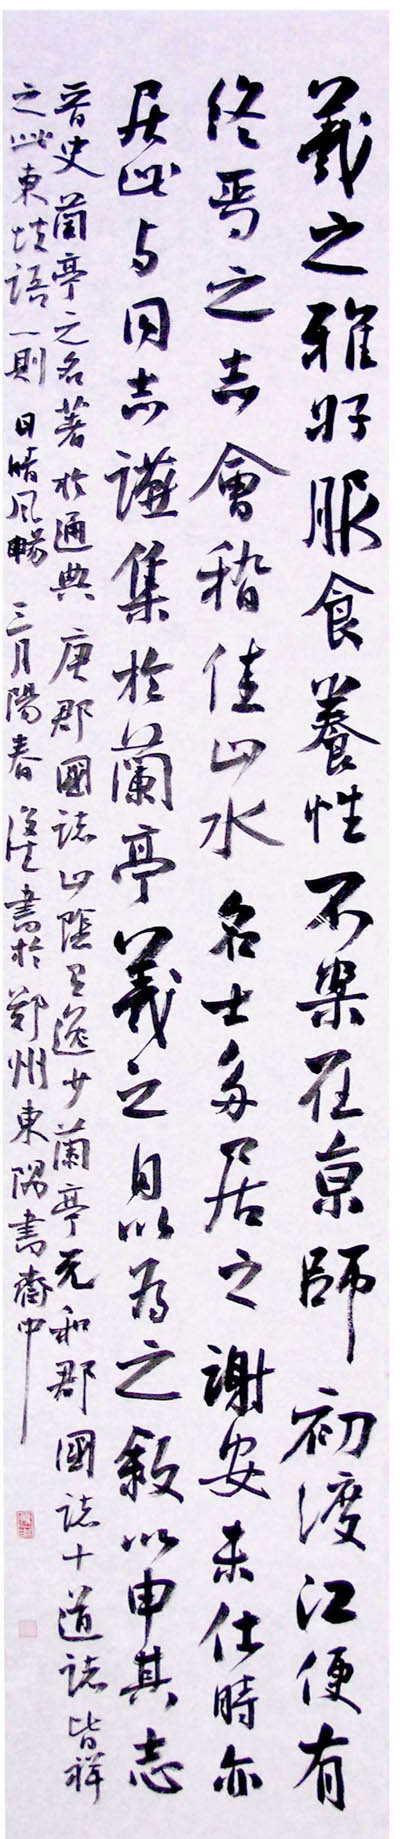 羲之雅好服食養性不樂在京師初渡江便有
終焉之志會稽佳山水名士多居之謝安未仕時亦
居此與同志讌集於蘭亭羲之自以為之敘以申其志
晉史蘭亭之名著於通典唐郡國誌山陰有逸少蘭亭元和郡國誌十道誌皆祥
之此東坡語一則日晴風暢三月陽春書於鄭州東隅書齋中